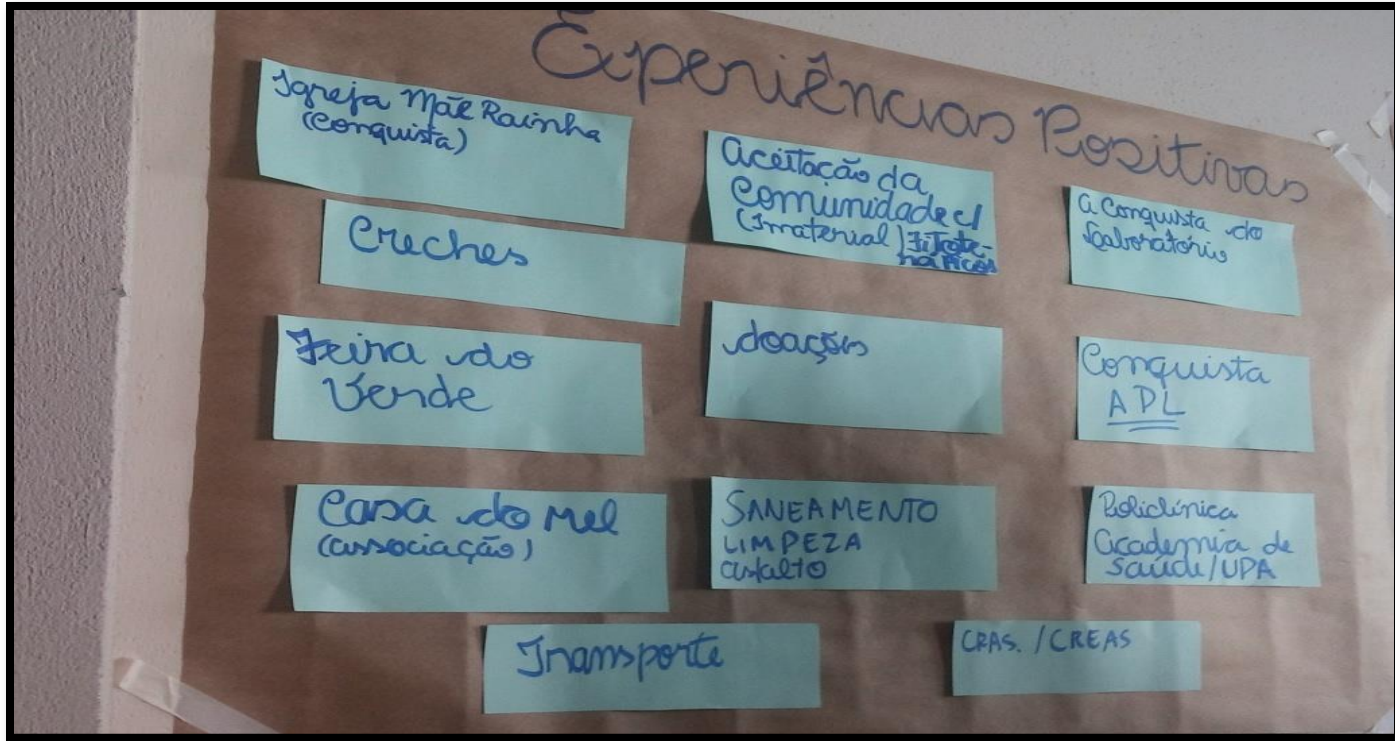 Experiências Positivas
Igreja Mãe Rainha
(Conquista)
Creches
Feira do
Verde
Casa do Mel
(associação)
Transporte
Aceitação da
Comunidade c/
(Imaterial) Fitote-
rápicos
doações
SANEAMENTO
LIMPEZA
asfalto
a Conquista do
Laboratório
Conquista
APL
Policlínica
Academia de
Saúde/UPA
CRAS. / CREAS